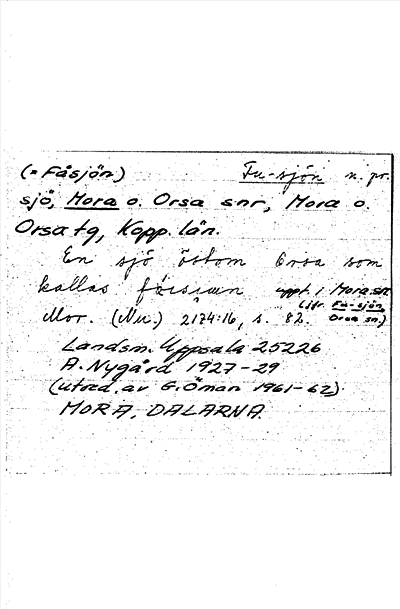 (= Fåsjön) Fu-sjön n. pr.
sjö, Mora o. Orsa snr, Mora o.
Orsa tg, Kopp. län.
En sjö östom Orsa som
kallas uppt. i Mora sn.
(jfr Fu-sjön,
Mor. (Mu.) 2174:16, s. 82. Orsa sn.)
Landsm. Uppsala 25226
A. Nygård 1927-29
(utred. av G. Öman 1961-62)
MORA, DALARNA.